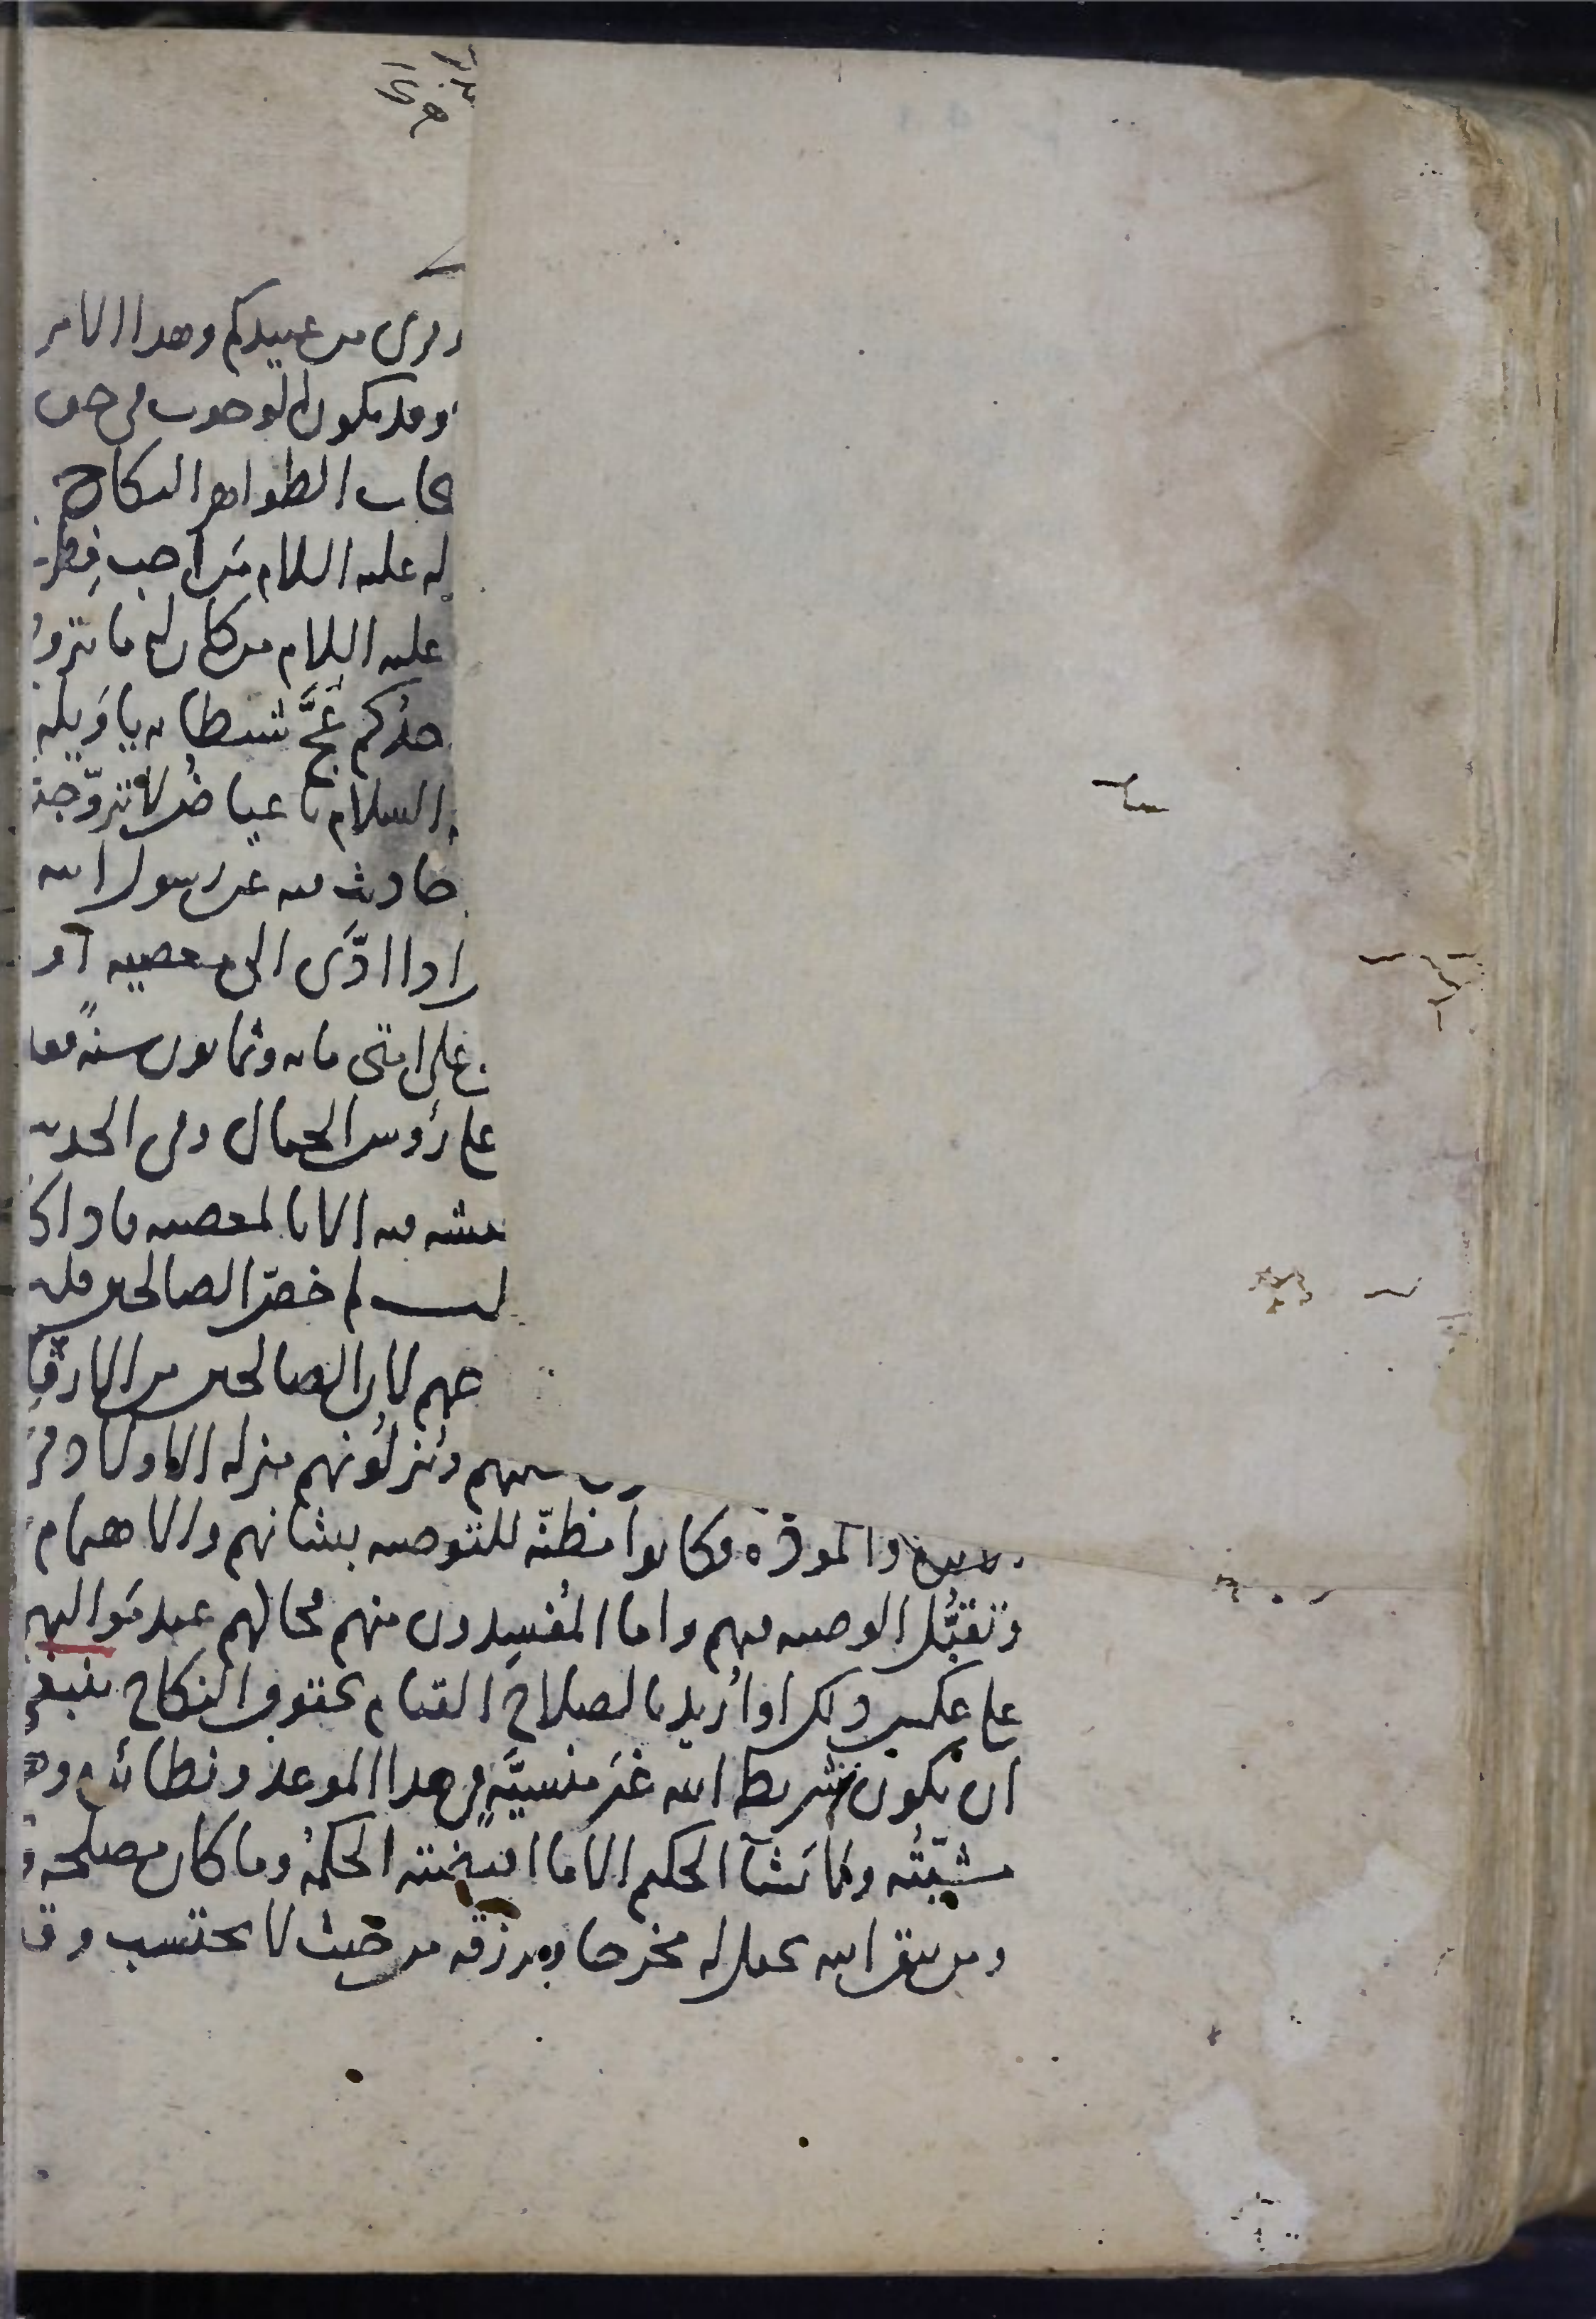 وقرئ من عبيدكم وهذا الامر
وقد يكون الوجوب في حق
حاب الظواهر النكاح
له عليه السلام من احب فطر
عليه السلام من كان له ما يتزو
حدكم عجَّ شيطانه يا ويله
السلام يا عياض لا تزوّجن
حاديث فيه عن رسول الله
اذا ادّى الى معصيه او
على امتى مايه وثمانون سنةً فقد
على رؤوس الجبال وفي الحديث
عيشه فيه الا بالمعصيه فاذا كا
لم خصّ الصالحين قلت
لان الصالحين من الارقا
وينزلونهم منزله الاولاد في
والمودّه وكانوا مظنّه للتوصيه بشانهم والاهتمام
وتقبُّل الوصيه فيهم واما المُفسِدون منهم فحالهم عند مَواليهم
على عكس ذلك او اُريد بالصلاح القيام بحقوق النكاح ينبغي
ان يكون شريطه الله غير منسيَّةٍ في هذا الموعد ونظائره وهي
مشيّتُه ولا يشآ الحكيم الا ما اقتضته الحكمهُ وما كان مصلحه و
ومن يتق الله يجعل له مخرجا ويرزقه من حيث لا يحتسب وق